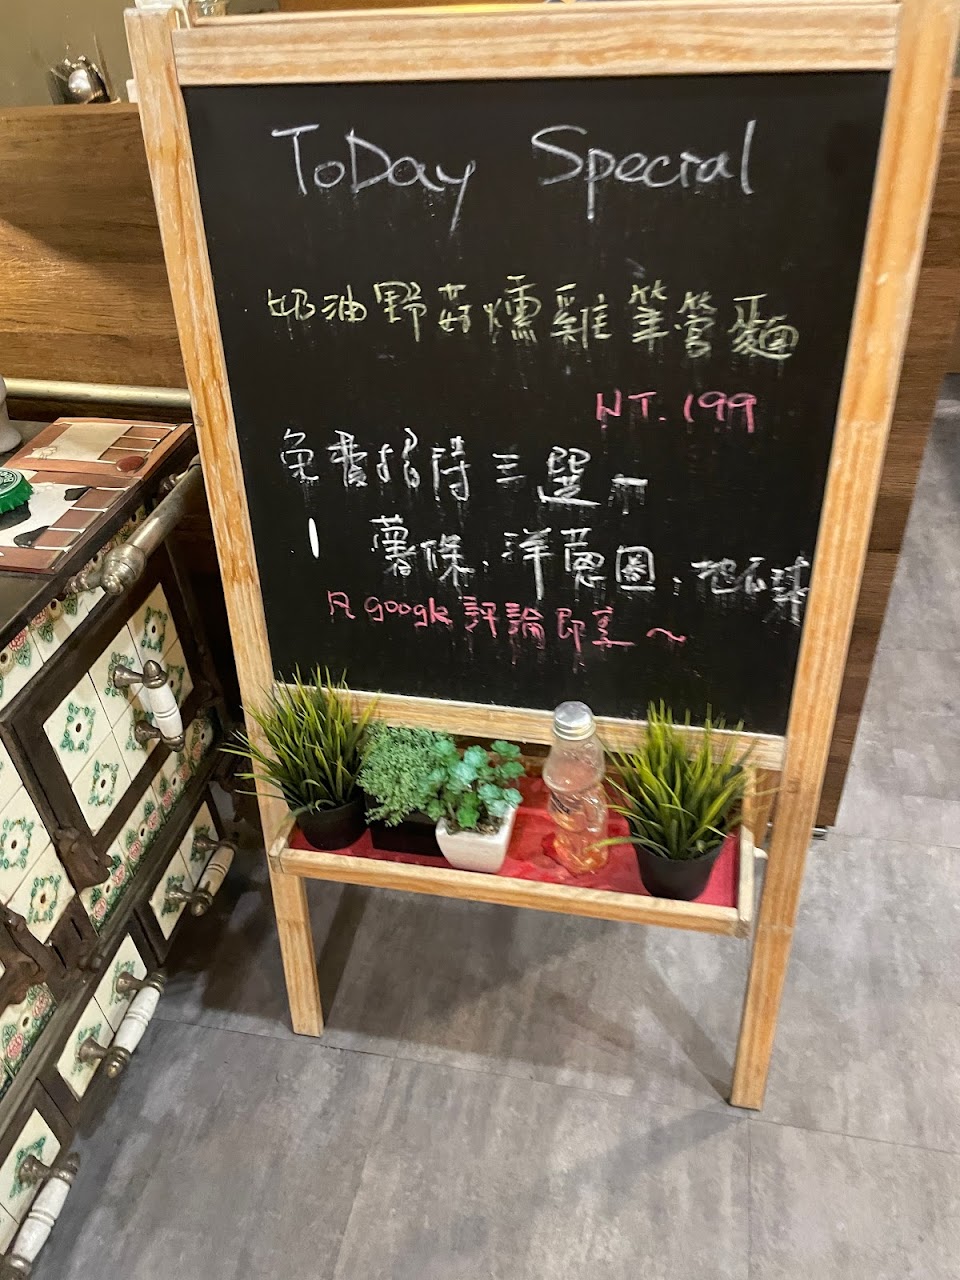 ToDay Special
奶油野菇燻雞筆管麵
NT.199
免費招待三選一
薯條、洋蔥圈、地瓜球
凡google評論即享~